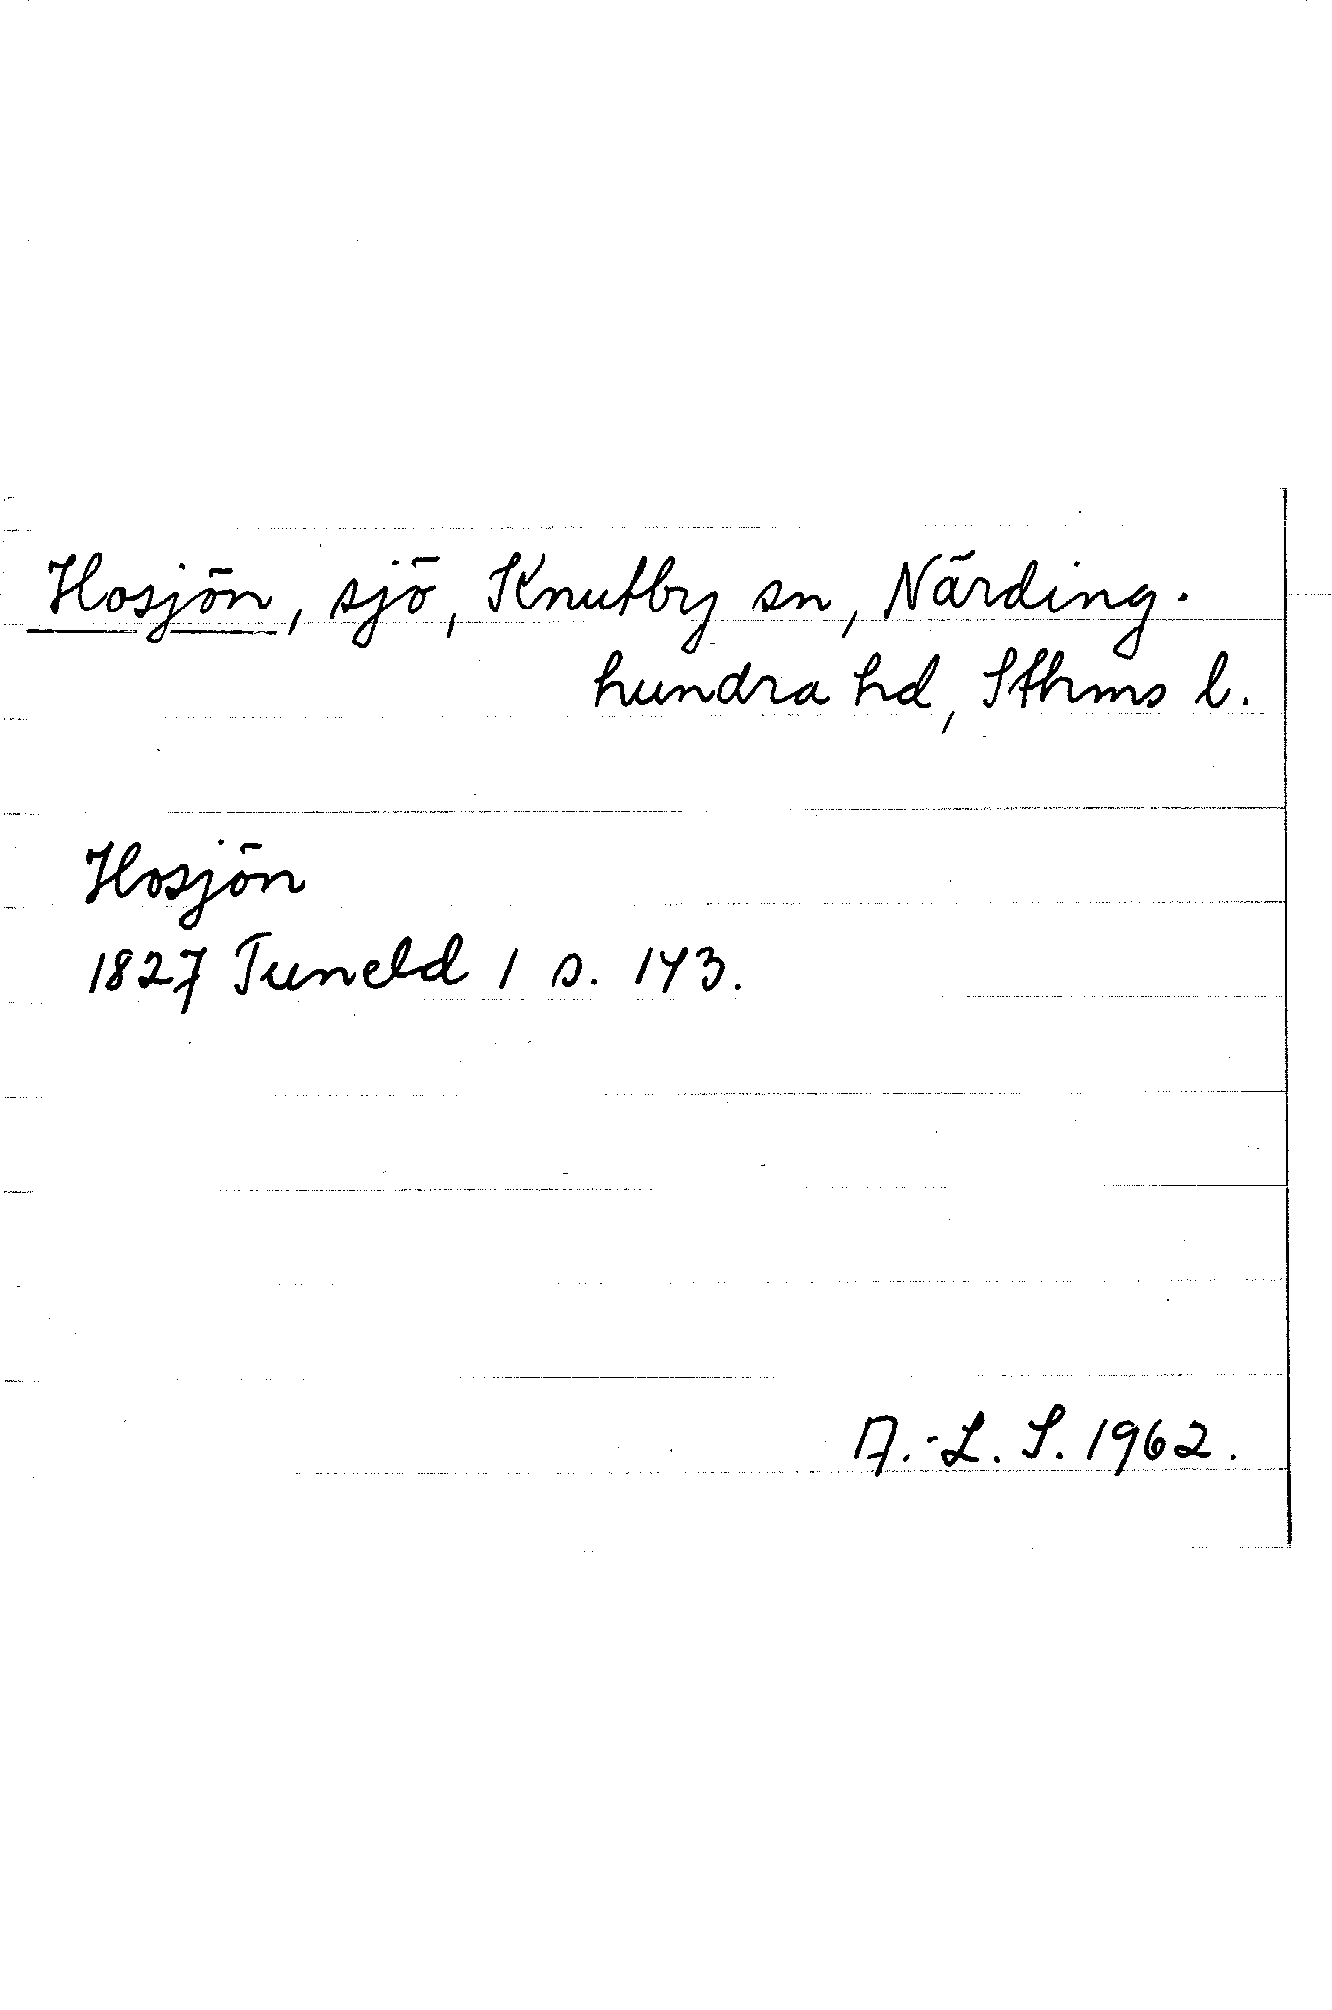 Hosjön, sjö, Knutby sn, Närding.
hundra hd, Sthms l.
Hosjön
1827 Tuneld 1 s. 143.
A.-L. S. 1962.